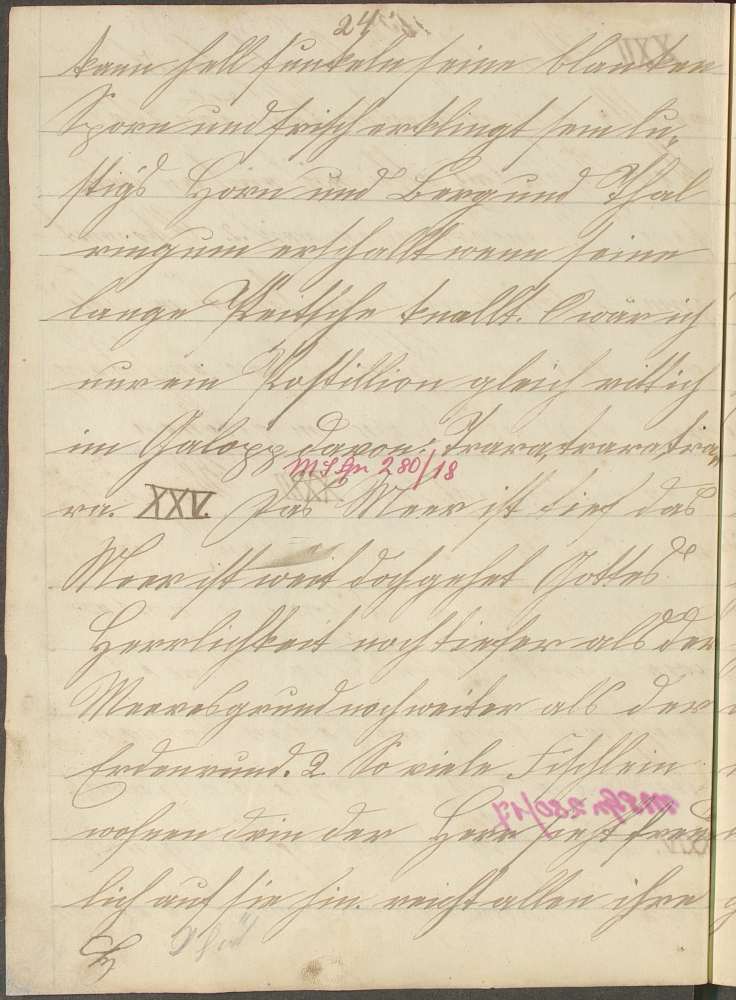 24
kann hell funkeln seine blanken
Sporn und frisch erklingt sein lu-
stig's Horn und Berg und Thal
ringsum erschallt wenn seine
lange Peitsche knallt. O wär ich
nur ein Postillion gleich ritt ich
im Galopp davon: Trara, trara tra-
ra. XXV. Das Meer ist tief das
Meer ist weit doch gehet Gottes
Herrlichkeit noch tiefer als der
Meeresgrund noch weiter als der
Erdenrund. 2. So viele Fischlein
wohnen drin der Herr sieht freund
lich auf sie hin. reicht allen ihre